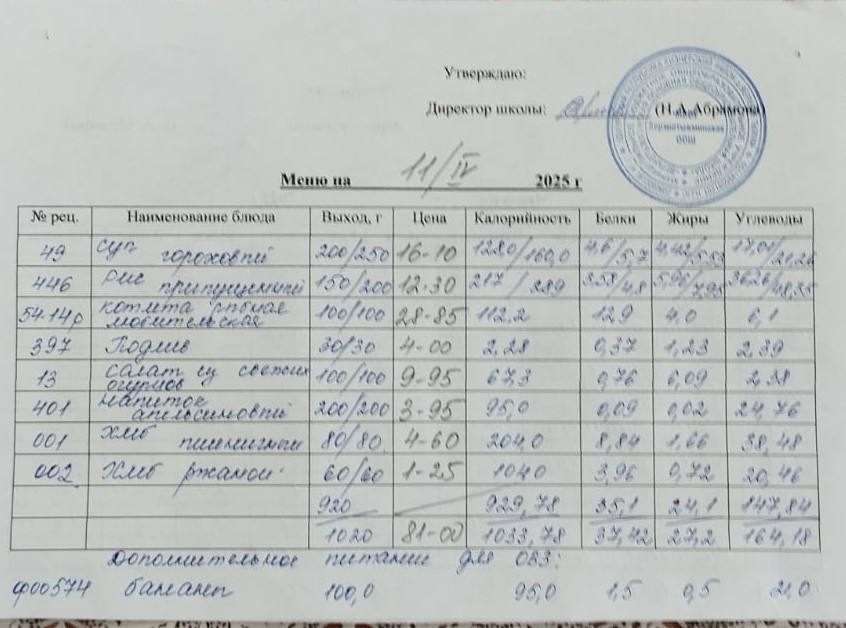 Утверждаю:
Директор школы: (Н.А.Абрамова)
Меню на 11/IV 2025 г
№ рец. Наименование блюда Выход, г Цена Калорийность Белки Жиры Углеводы
49 суп гороховый 200/250 16-10 128,0/160,0 4,6/5,7 4,42/5,53 17,01/21,26
446 рис припущенный 150/200 12-30 217/289 3,58/4,8 5,96/7,95 36,26/48,35
54-14р котлета рыбная любительская 100/100 28-85 112,2 12,9 4,0 6,1
397 Подлив 30/30 4-00 2,28 0,37 1,23 2,39
13 салат из свежих огурцов 100/100 9-95 67,3 0,76 6,09 2,38
401 напиток апельсиновый 200/200 3-95 95,0 0,09 0,02 24,76
001 хлеб пшеничный 80/80 4-60 204,0 8,84 1,66 38,48
002 Хлеб ржаной 60/60 1-25 104,0 3,96 0,72 20,46
920 929,78 35,1 24,1 147,84
1020 81-00 1033,78 37,42 27,2 164,18
Дополнительное питание для ОВЗ:
ф00574 бананы 100,0 95,0 1,5 0,5 21,0